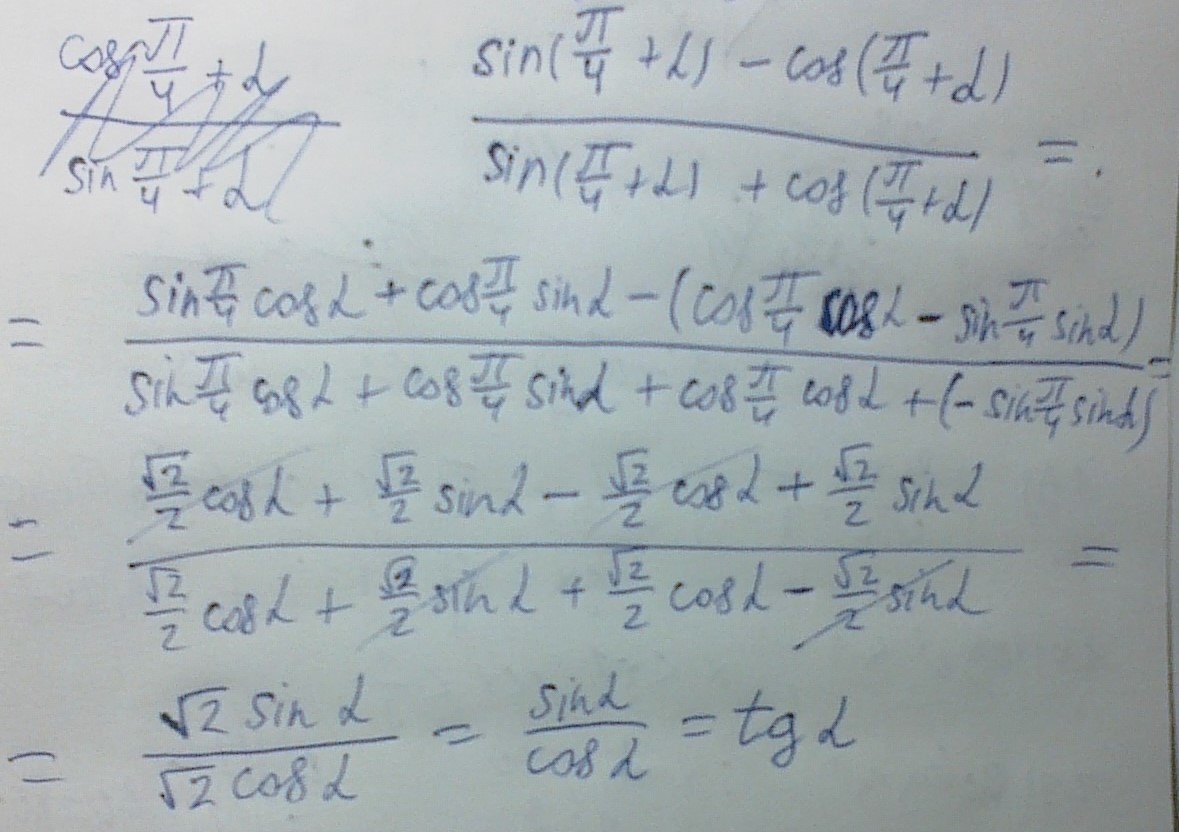 cos π/4 + α
sin π/4 + α
sin(π/4 + α) - cos(π/4 + α)
sin(π/4 + α) + cos(π/4 + α) = .
= sin π/4 cos α + cos π/4 sin α - (cos π/4 cos α - sin π/4 sin α)
sin π/4 cos α + cos π/4 sin α + cos π/4 cos α + (- sin π/4 sin α) =
= √2/2 cos α + √2/2 sin α - √2/2 cos α + √2/2 sin α
√2/2 cos α + √2/2 sin α + √2/2 cos α - √2/2 sin α =
= √2 sin α / √2 cos α = sin α / cos α = tg α